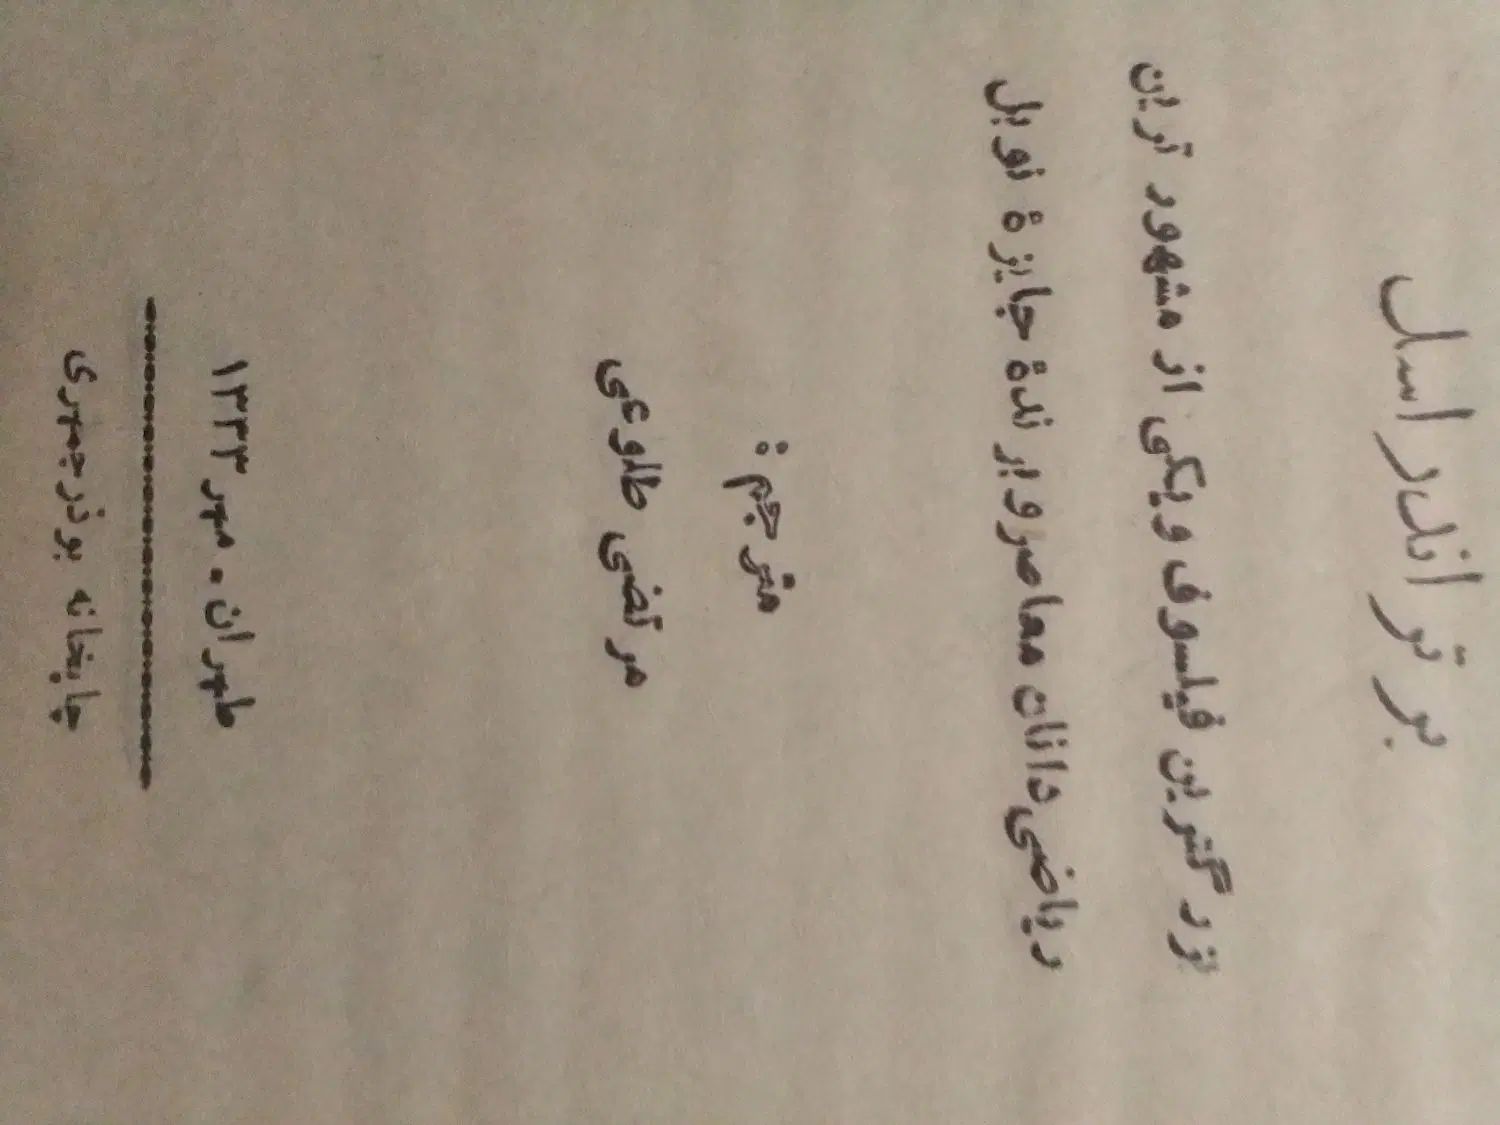 برتراندراسل
بزرگترین فیلسوف ویکی از مشهور ترین
ریاضی‌دانان معاصر و برندهٔ جایزهٔ نوبل
مترجم:
مرتضی طلوعی
طهران - مهر ۱۳۳۳
چاپخانه بوذرجمهری